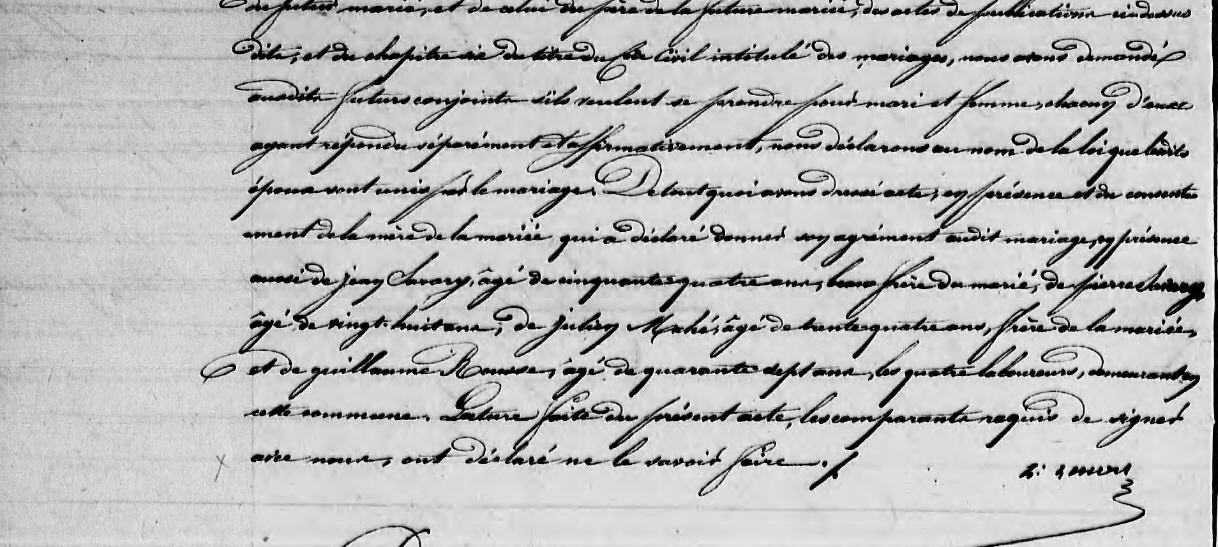 du futur marié, et de celui du père de la future mariée, des actes de publications cindessus
dits, et du chapitre six du titre du Code Civil intitulé des mariages, nous avons demandé
auxdits futurs conjoints s'ils veulent se prendre pour mari et femme, chacun d'eux
ayant répondu séparément et affirmativement, nous déclarons au nom de la loi que lesdits
époux sont unis par le mariage. De tout quoi avons dressé acte, en présence et du consente
ement de la mère de la mariée qui a déclaré donner son agrément audit mariage, en présence
aussi de jean Chevary, âgé de cinquante quatre ans, beau frère du marié, de pierre
âgé de vingt-huit ans, de julien Mahé, âgé de trente quatre ans, frère de la mariée,
et de guillaume Rousse, âgé de quarante sept ans, les quatre laboureurs, demeurant en
cette commune. Lecture faite du présent acte, les comparants requis de signer
avec nous, ont déclaré ne le savoir faire.